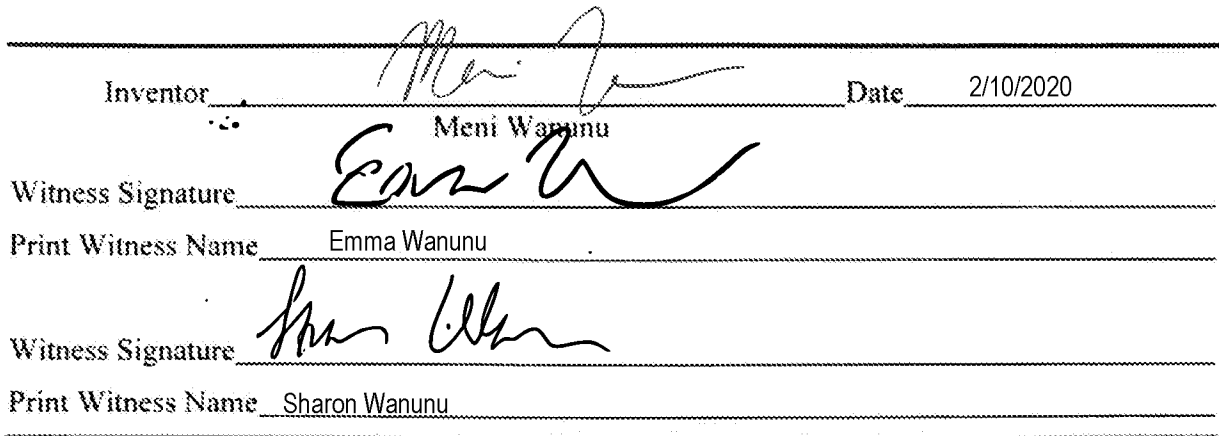 Inventor Meni Date 2/10/2020
Meni Wanunu
Witness Signature Emma
Print Witness Name Emma Wanunu
Witness Signature Sharon
Print Witness Name Sharon Wanunu